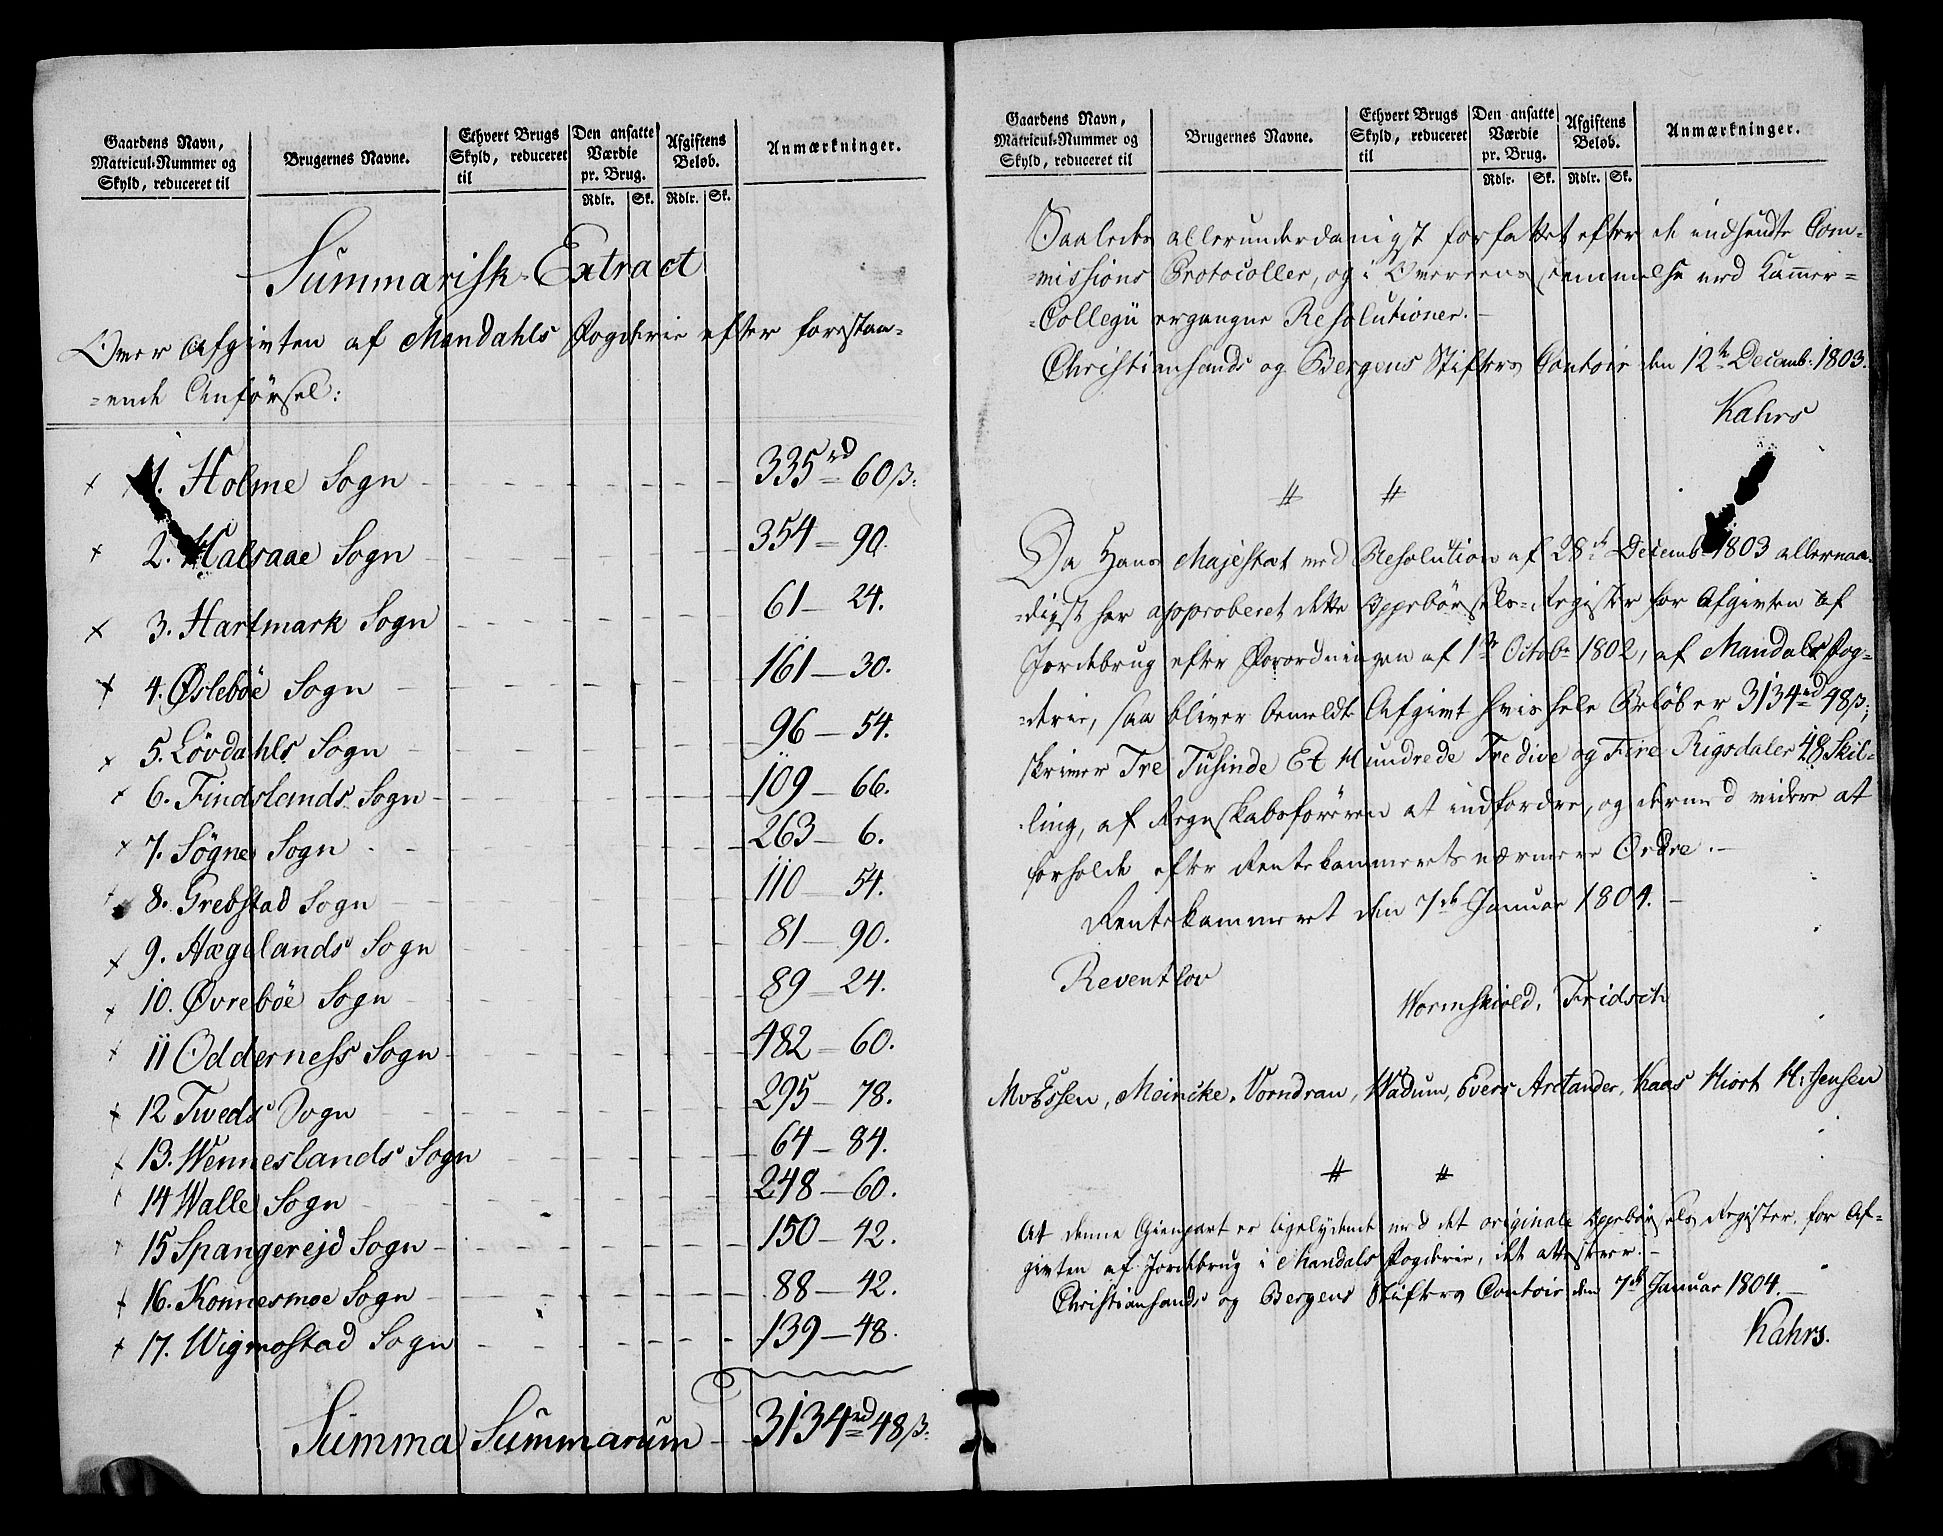 Gaardens Navn,
Matricul-Nummer og
Skyld, reduceret til
Brugernes Navne.
Ethvert Brugs
Skyld, reduceret
til
Den ansatte
Værdie
pr. Brug.
Rdlr. Sk.
Afgiftens
Beløb.
Rdlr. Sk.
Anmærkninger.
Summarisk Extract
Over Afgivten af Mandahls Fogderie efter forestaa-
=ende Anförsel:
1. Holme Sogn 335 rd = 60 ß.
2. Halsaae Sogn 354 = 90.
3. Hartmark Sogn 61 - 24.
4. Øslebőe Sogn 161 - 30.
5. Lövdahls Sogn 96 - 54.
6. Findslands Sogn 109 - 66.
7. Sögne Sogn 263 - 6.
8. Grebstad Sogn 110 - 54.
9. Hægelands Sogn 81 - 90.
10. Øvrebőe Sogn 89 - 24.
11 Odderness Sogn 482 - 60.
12 Tweds Sogn 295 - 78.
13. Wenneslands Sogn 64 - 84.
14 Walle Sogn 248 - 60.
15 Spangerejd Sogn 150 - 42.
16. Konnesmoe Sogn 88 - 42.
17. Wigmostad Sogn 139 - 48.
Summa Summarum 3134 rd = 48 ß.
Gaardens Navn,
Matricul-Nummer og
Skyld, reduceret til
Brugernes Navne.
Ethvert Brugs
Skyld, reduceret
til
Den ansatte
Værdie
pr. Brug.
Rdlr. Sk.
Afgiftens
Beløb.
Rdlr. Sk.
Anmærkninger.
Saaledes allerunderdanigst forfattet efter de indsendte Com-
=missions Protocoller, og i Overeensstemmelse med Kam̅er-
=Collegii ergangne Resolutioner.-
Christiansands og Bergens Stifters Contoir den 12te Decemb: 1803.
Kahrs
# #
Da Hans Majestæt ved Resolution af 28de Decemb 1803 allernaa-
=digst har approberet dette Oppebörsels-Register for Afgivten af
Jordebrug efter Forordningen af 1ste Octobr 1802, af Mandals Fog-
=derie, saa bliver bemeldte Afgivt hvis hele Belöb er 3134 rd 48 ß;
skriver Tre Tusinde Et Hundrede Tredive og Fire Rigsdaler 48 Skil-
=ling, af Regnskabsföreren at indfordre, og dermed videre at
forholde efter Rentekammerets nærmere Ordre.-
Rentekammeret den 7de Januar 1804.-
Reventlov
Wormskiold, Fridsch
MvEssen, Meincke, Vorndran, Wadum, Evers Arctander, Kaas Hiort H: Jensen
# #
At denne Gienpart er ligelydende med det originale Oppebörsels Register, for Af-
givten af Jordebrug i Mandals Fogderie, det attesterer.-
Christiansands og Bergens Stifters Contoir den 7de Januar 1804.-
Kahrs.